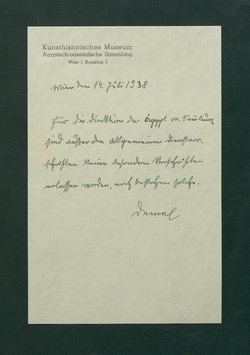 Kunsthistorisches Museum
Ägyptisch-orientalische Sammlung
Wien I, Burgring 5
Wien den 14. Juli 1938
Für die Direktion der Ägypt. or. Sammlung
sind außer den allgemeinen Dienstvor-
schriften keine besonderen Vorschriften
erlassen worden, noch bestehen solche.
Demel